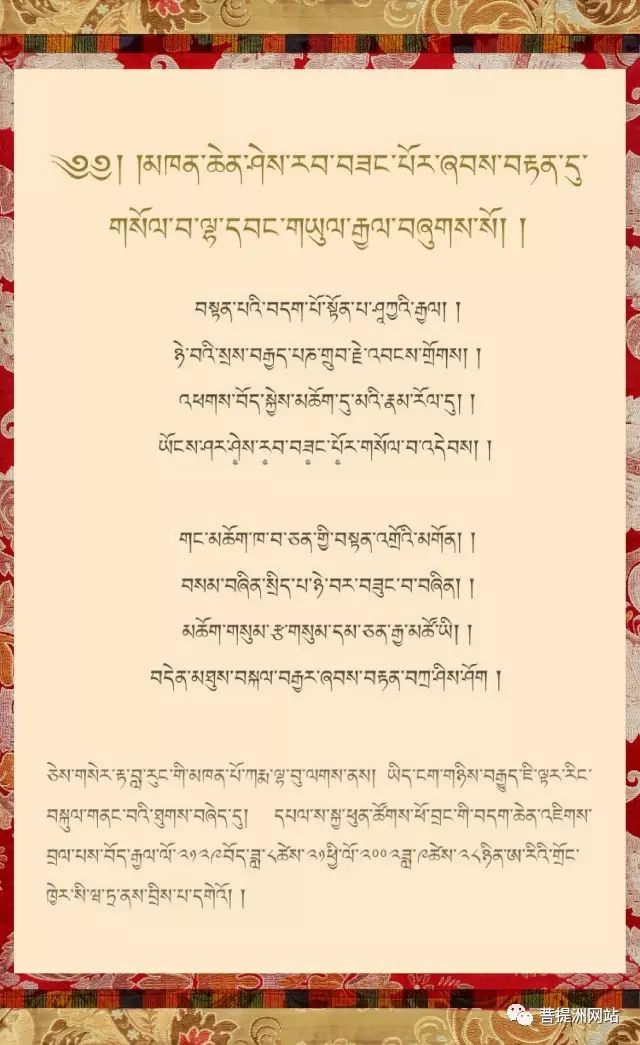 ༄༅། །མཁན་ཆེན་ཤེས་རབ་བཟང་པོར་ཞབས་བརྟན་དུ་
གསོལ་བ་ལྷ་དབང་གཡུལ་རྒྱལ་བཞུགས་སོ། །
བསྟན་པའི་བདག་པོ་སྟོན་པ་ཤཱཀྱའི་རྒྱལ། །
ཉེ་བའི་སྲས་བརྒྱད་པཎ་གྲུབ་རྗེ་འབངས་གྲོགས། །
འཕགས་བོད་སྐྱེས་མཆོག་དུ་མའི་རྣམ་རོལ་དུ། །
ཡོངས་ཤར་ཤེ༷ས་ར༷བ་བཟ༷ང་པོ༷ར་གསོལ་བ་འདེབས། །
གང་མཆོག་ཁ་བ་ཅན་གྱི་བསྟན་འགྲོའི་མགོན། །
བསམ་བཞིན་སྲིད་པ་ཉེ་བར་བཟུང་བ་བཞིན། །
མཆོག་གསུམ་རྩ་གསུམ་དམ་ཅན་རྒྱ་མཚོ་ཡི། །
བདེན་མཐུས་བསྐལ་བརྒྱར་ཞབས་བརྟན་བཀྲ་ཤིས་ཤོག །
ཅེས་གསེར་རྟ་བླ་རུང་གི་མཁན་པོ་ཀརྨ་ལྷ་བུ་ལགས་ནས། ཡིད་ངག་གཉིས་བརྒྱུད་ཇི་ལྟར་རིང་
བསྐུལ་གནང་བའི་ཐུགས་བཞེད་དུ། དཔལ་ས་སྐྱ་ཕུན་ཚོགས་ཕོ་བྲང་གི་བདག་ཆེན་འཇིགས་
བྲལ་པས་བོད་རྒྱལ་ལོ་༢༡༢༩བོད་ཟླ་༨ཚེས་༢༡ཕྱི་ལོ་༢༠༠༢ཟླ་༩ཚེས་༢༨ཉིན་ཨ་རིའི་གྲོང་
ཁྱེར་སི་ཝ་ཏྲ་ནས་བྲིས་པ་དགེའོ། །
菩提洲网站